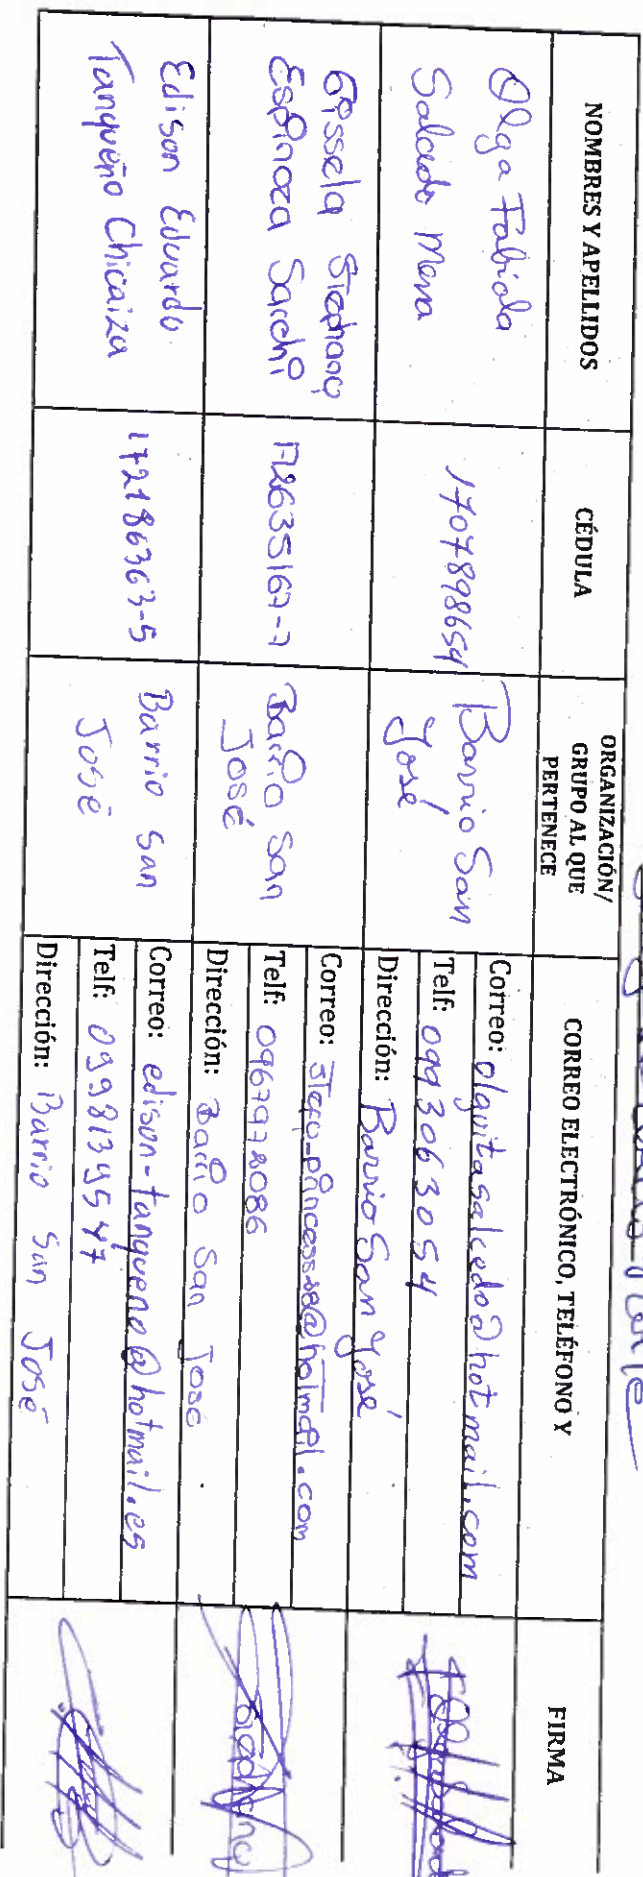 NOMBRES Y APELLIDOS
CÉDULA
ORGANIZACIÓN/
GRUPO AL QUE
PERTENECE
CORREO ELECTRÓNICO, TELÉFONO Y
FIRMA
Olga Fabiola
Salcedo Mena
1707898654
Barrio San
José
Correo: olguitasalcedo@hotmail.com
Telf: 0993063054
Dirección: Barrio San José
Gissela Stephany
Espinoza Sarchi
172635167-7
Barrio San
José
Correo: stefy_princess28@hotmail.com
Telf: 0967972086
Dirección: Barrio San José
Edison Eduardo
Tanqueño Chicaiza
172186363-5
Barrio San
José
Correo: edison-tanqueno@hotmail.es
Telf: 0998139547
Dirección: Barrio San José